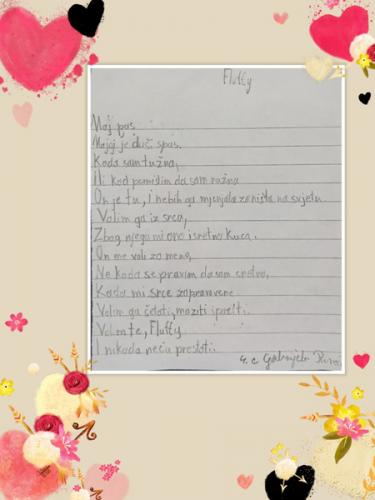 Fluffy
Moj pas
Mojoj je duši spas.
Kada sam tužna,
Ili kad pomislim da sam ružna
On je tu, i nebih ga mjenjala za ništa na svjetu
Volim ga iz srca,
Zbog njega mi ono sretno kuca.
On me voli za mene,
Ne kada se pravim da sam sretna,
Kada mi srce zaprovene
Volim ga čačati, maziti i paziti.
Volim te, Fluffy
I nikada neću prestati.
4. c Gabrijela